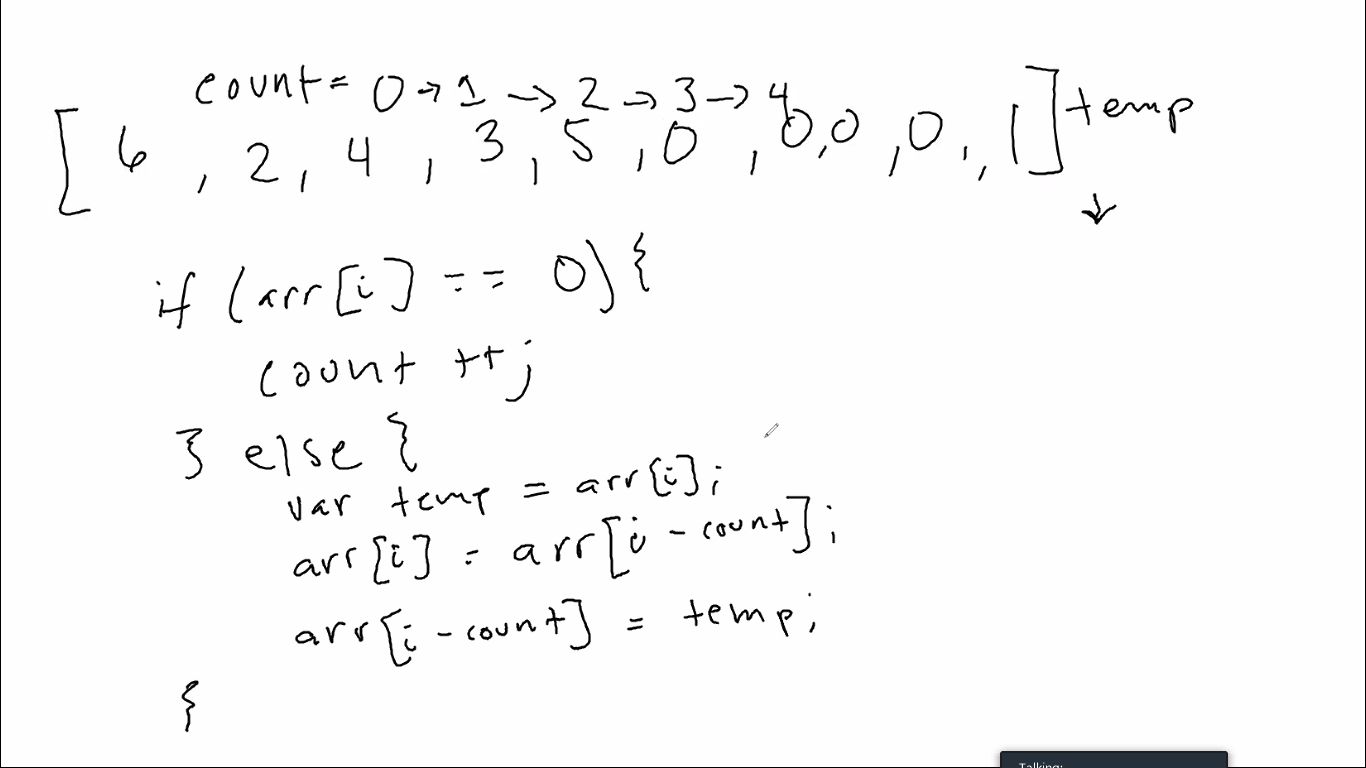 count = 0 → 1 → 2 → 3 → 4
[ 6 , 2 , 4 , 3 , 5 , 0 , 0 , 0 , 0 , , 1 ] temp
↓
if (arr[i] == 0) {
count ++;
} else {
var temp = arr[i];
arr[i] = arr[i - count];
arr[i - count] = temp;
{
Talking: